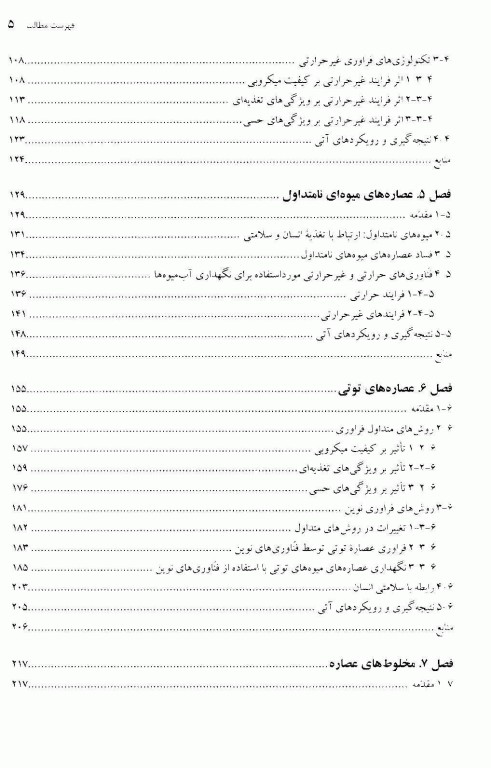 فهرست مطالب ۵
۳-۴ تکنولوژی‌های فراوری غیرحرارتی ۱۰۸
۴ ۳ ۱ اثر فرایند غیرحرارتی بر کیفیت میکروبی ۱۰۸
۴-۳-۲ اثر فرایند غیرحرارتی بر ویژگی‌های تغذیه‌ای ۱۱۳
۴-۳-۳ اثر فرایند غیرحرارتی بر ویژگی‌های حسی ۱۱۸
۴-۴ نتیجه‌گیری و رویکردهای آتی ۱۲۳
منابع ۱۲۴
فصل ۵. عصاره‌های میوه‌ای نامتداول ۱۲۹
۵-۱ مقدمه ۱۲۹
۵-۲ میوه‌های نامتداول: ارتباط با تغذیهٔ انسان و سلامتی ۱۳۱
۵ ۳ فساد عصاره‌های میوه‌های نامتداول ۱۳۴
۵ ۴ فنّاوری‌های حرارتی و غیرحرارتی مورداستفاده برای نگهداری آب‌میوه‌ها ۱۳۶
۵-۴-۱ فرایند حرارتی ۱۳۶
۵-۴-۲ فرایندهای غیرحرارتی ۱۴۱
۵-۵ نتیجه‌گیری و رویکردهای آتی ۱۴۸
منابع ۱۴۹
فصل ۶. عصاره‌های توتی ۱۵۵
۶-۱ مقدمه ۱۵۵
۶ ۲ روش‌های متداول فراوری ۱۵۵
۶ ۲ ۱ تأثیر بر کیفیت میکروبی ۱۵۷
۶-۲-۲ تأثیر بر ویژگی‌های تغذیه‌ای ۱۵۹
۶ ۲ ۳ تأثیر بر ویژگی‌های حسی ۱۷۶
۶-۳ روش‌های فراوری نوین ۱۸۱
۶-۳-۱ تغییرات در روش‌های متداول ۱۸۲
۶ ۳ ۲ فراوری عصارهٔ توتی توسط فنّاوری‌های نوین ۱۸۳
۶ ۳ ۳ نگهداری عصاره‌های میوه‌های توتی با استفاده از فنّاوری‌های نوین ۱۸۵
۶-۴ رابطه با سلامتی انسان ۲۰۳
۶-۵ نتیجه‌گیری و رویکردهای آتی ۲۰۵
منابع ۲۰۶
فصل ۷. مخلوط‌های عصاره ۲۱۷
۷ ۱ مقدمه ۲۱۷